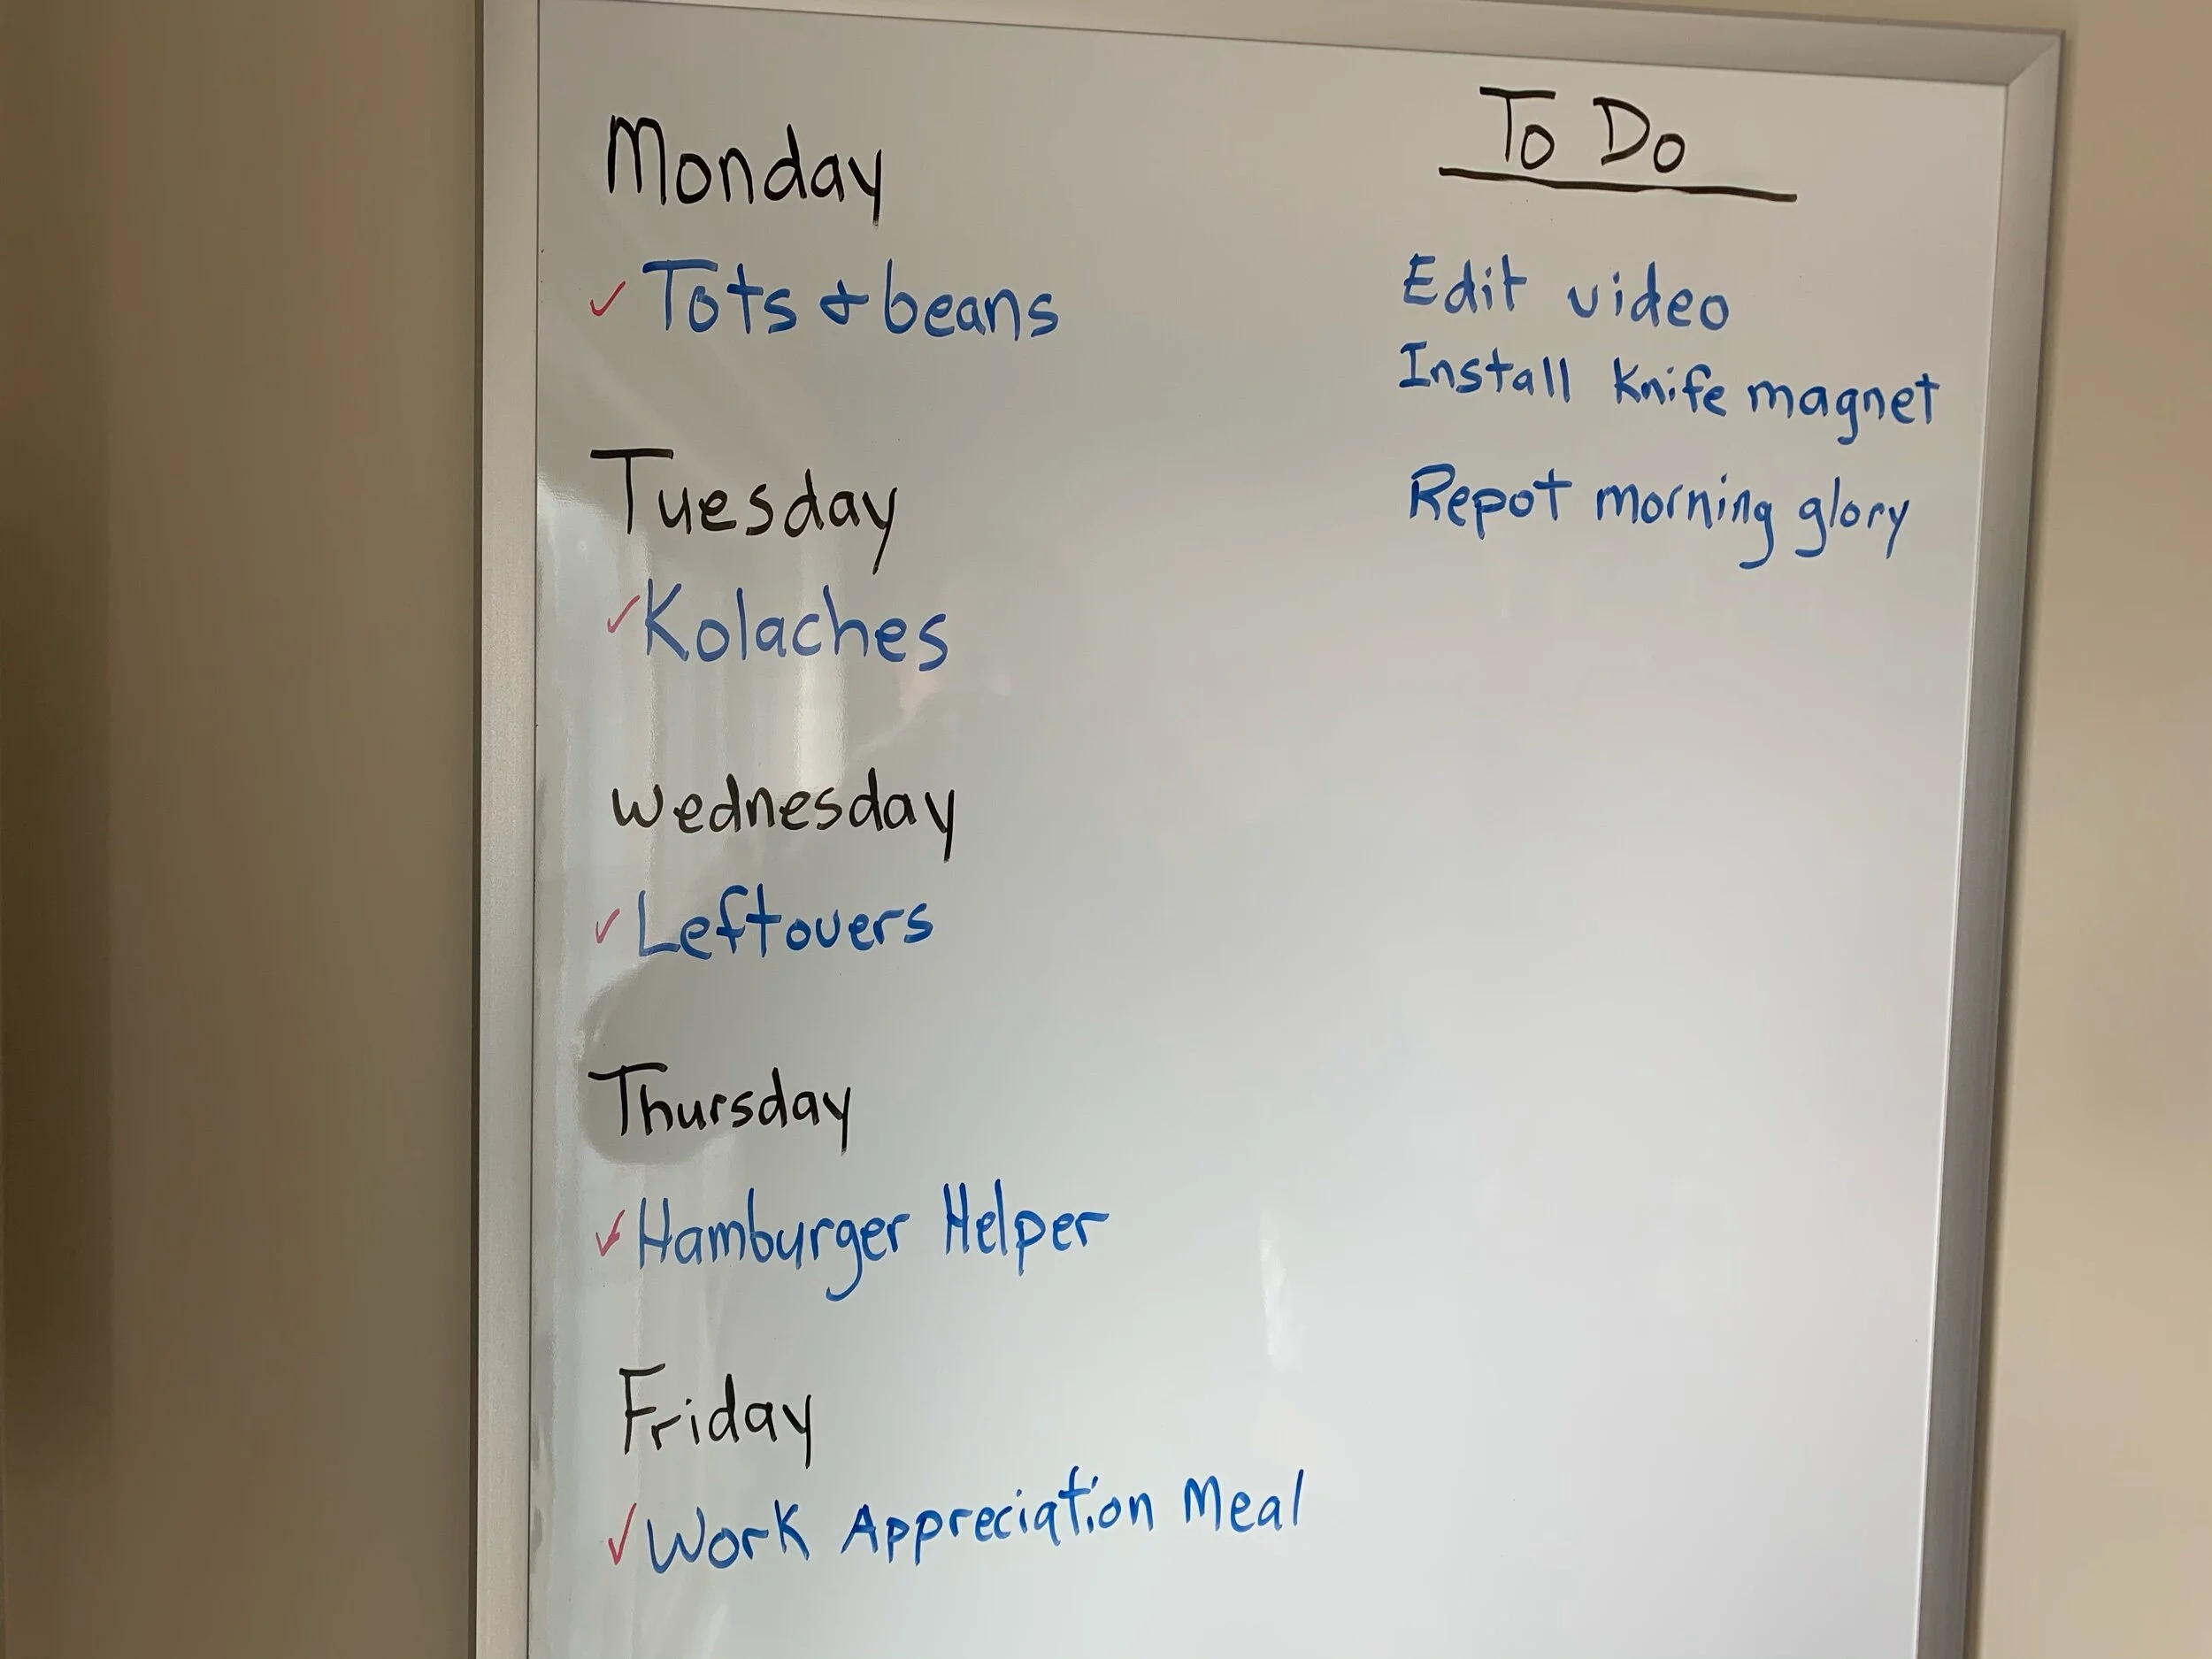 Monday
✓ Tots & beans
Tuesday
✓ Kolaches
Wednesday
✓ Leftovers
Thursday
✓ Hamburger Helper
Friday
✓ Work Appreciation Meal
To Do
Edit video
Install Knife magnet
Repot morning glory